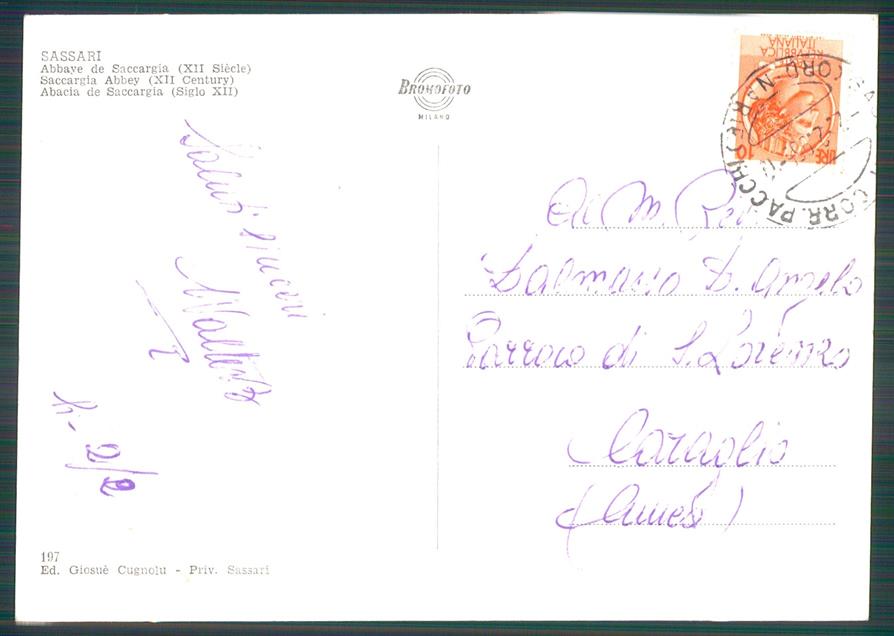 SASSARI
Abbaye de Saccargia (XII Siècle)
Saccargia Abbey (XII Century)
Abacia de Saccargia (Siglo XII)
BROMOFOTO
MILANO
REPUBBLICA
ITALIANA
LIRE 10
CORR. PACCHI
Saluti sinceri
Al M. Rev.
Dalmasso D. Angelo
Parroco di S. Lorenzo
Caraglio
(Cuneo)
197
Ed. Giosuè Cugnolu - Priv. Sassari